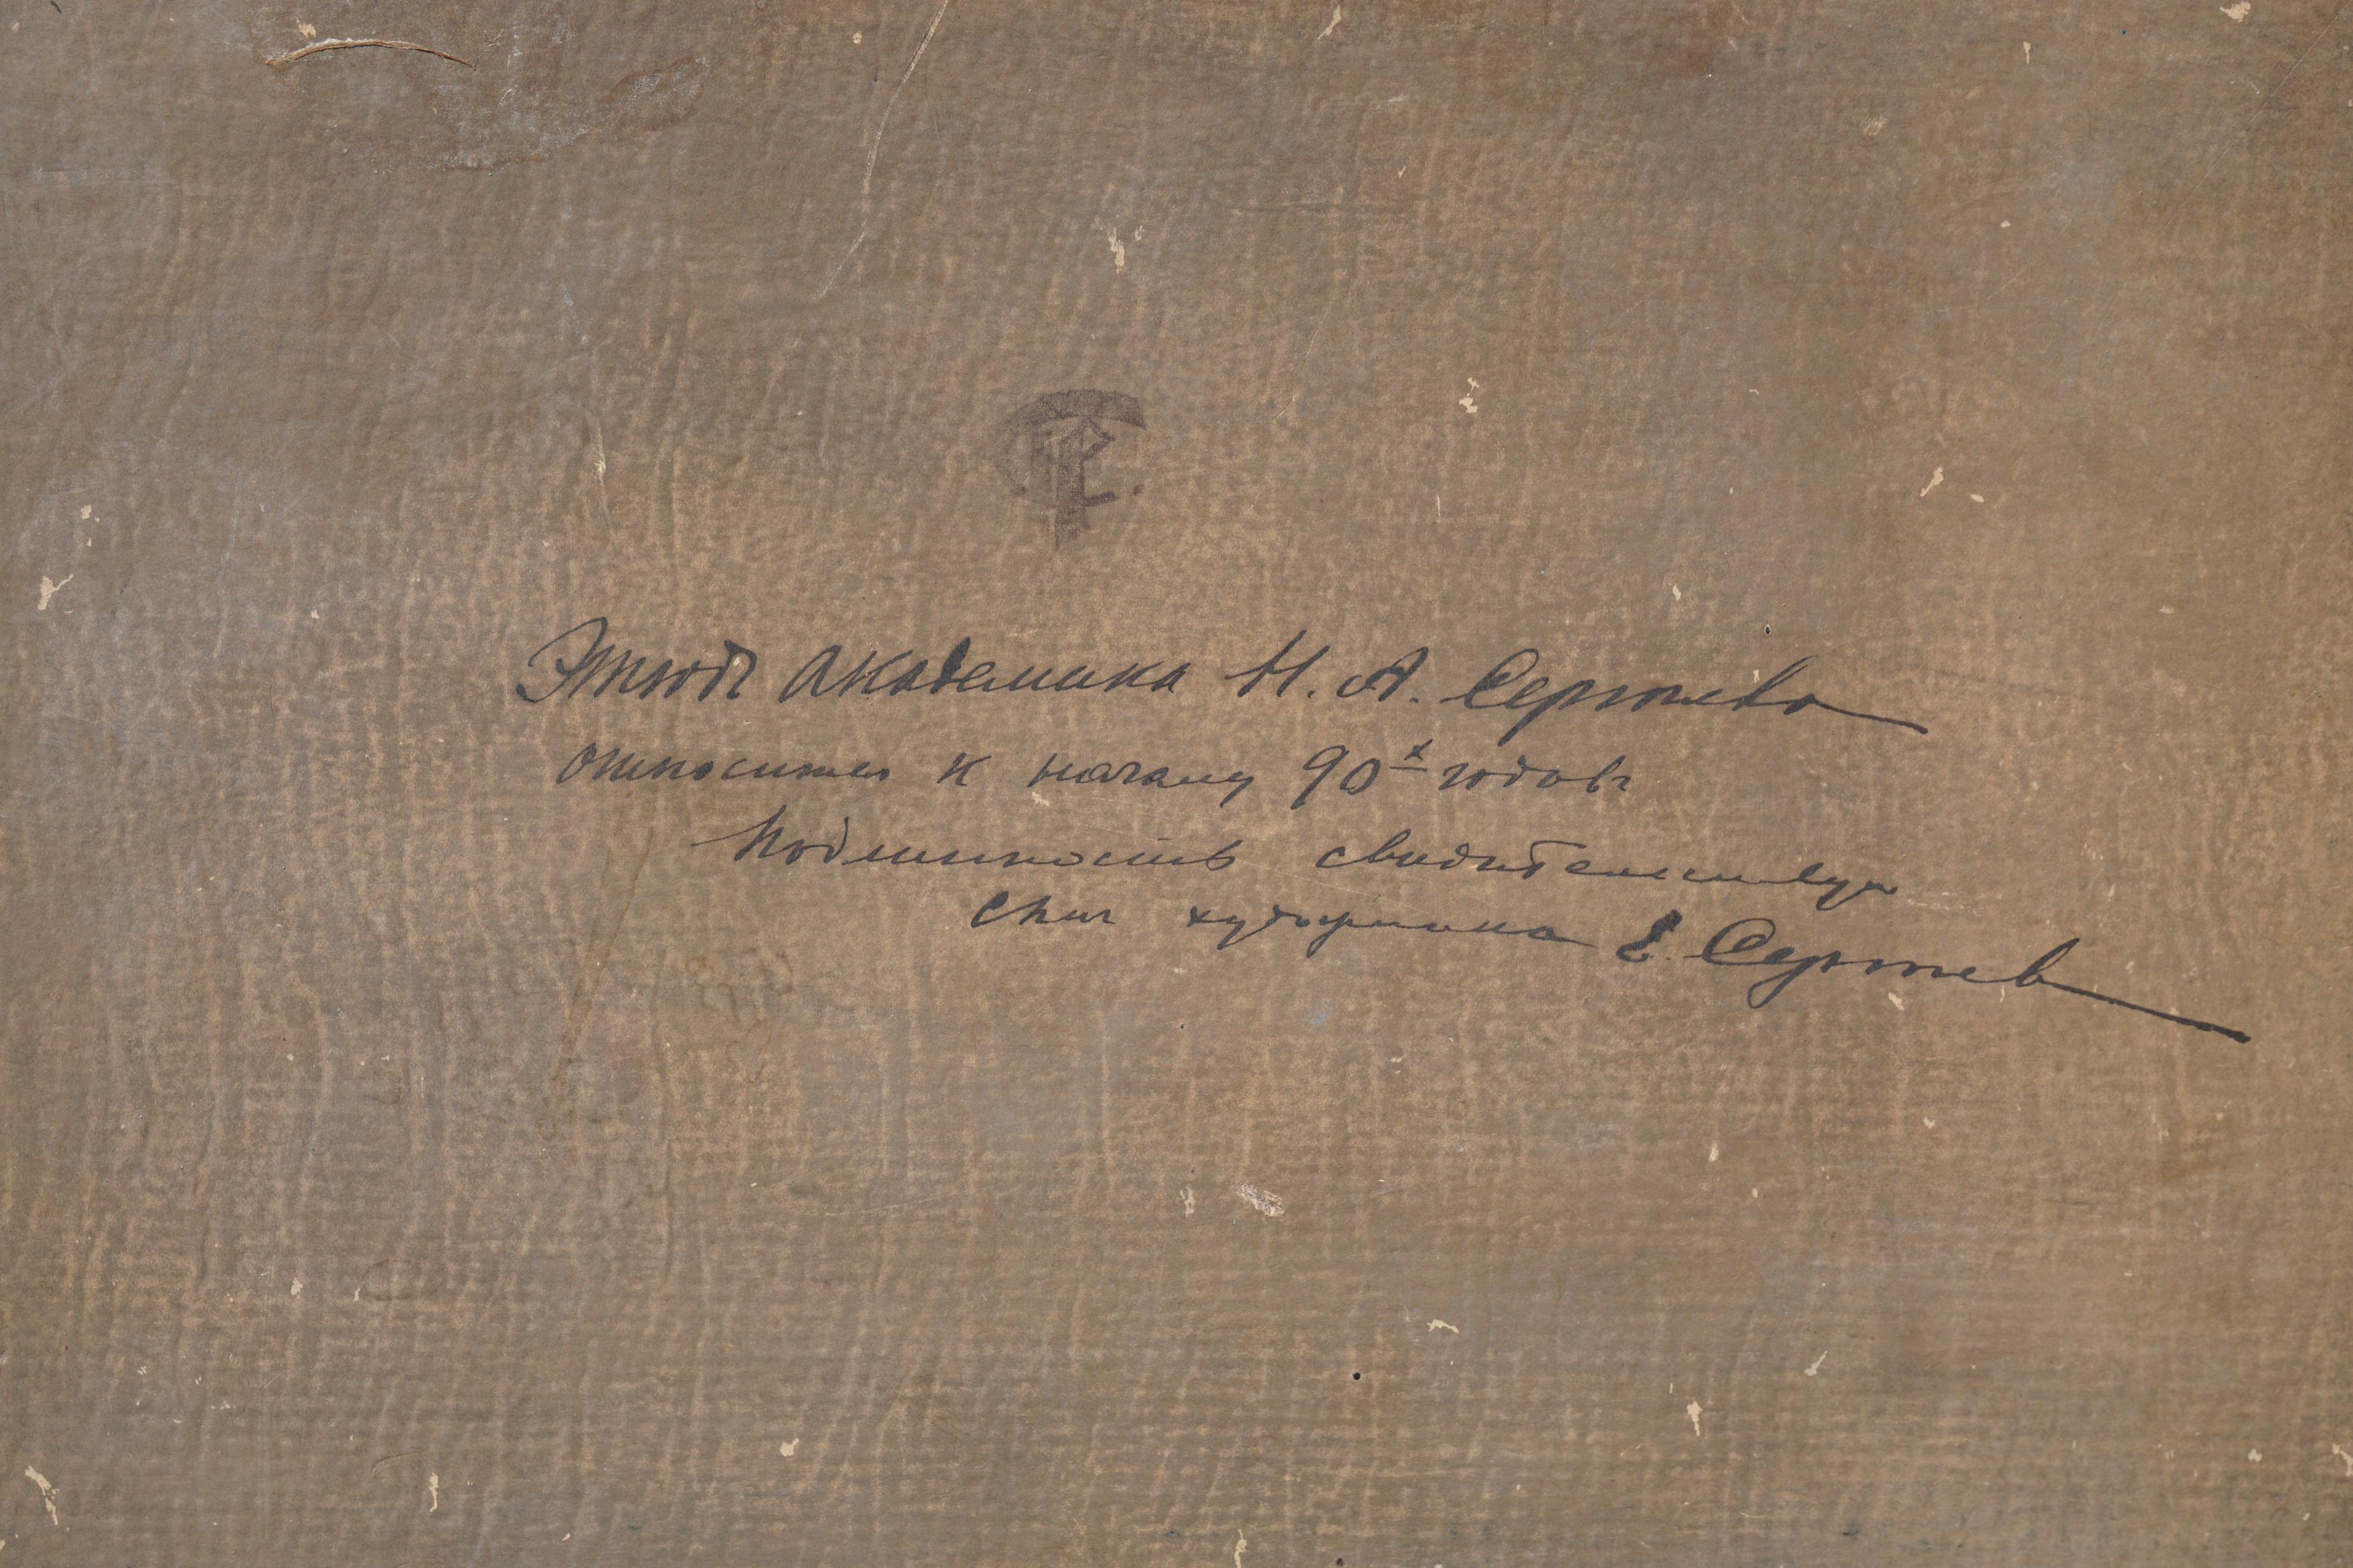 Этюдъ академика Н. А. Сергѣева
относится к началу 90х годовъ
Подлинность свидетельствую
Сынъ художника Е. Сергѣев